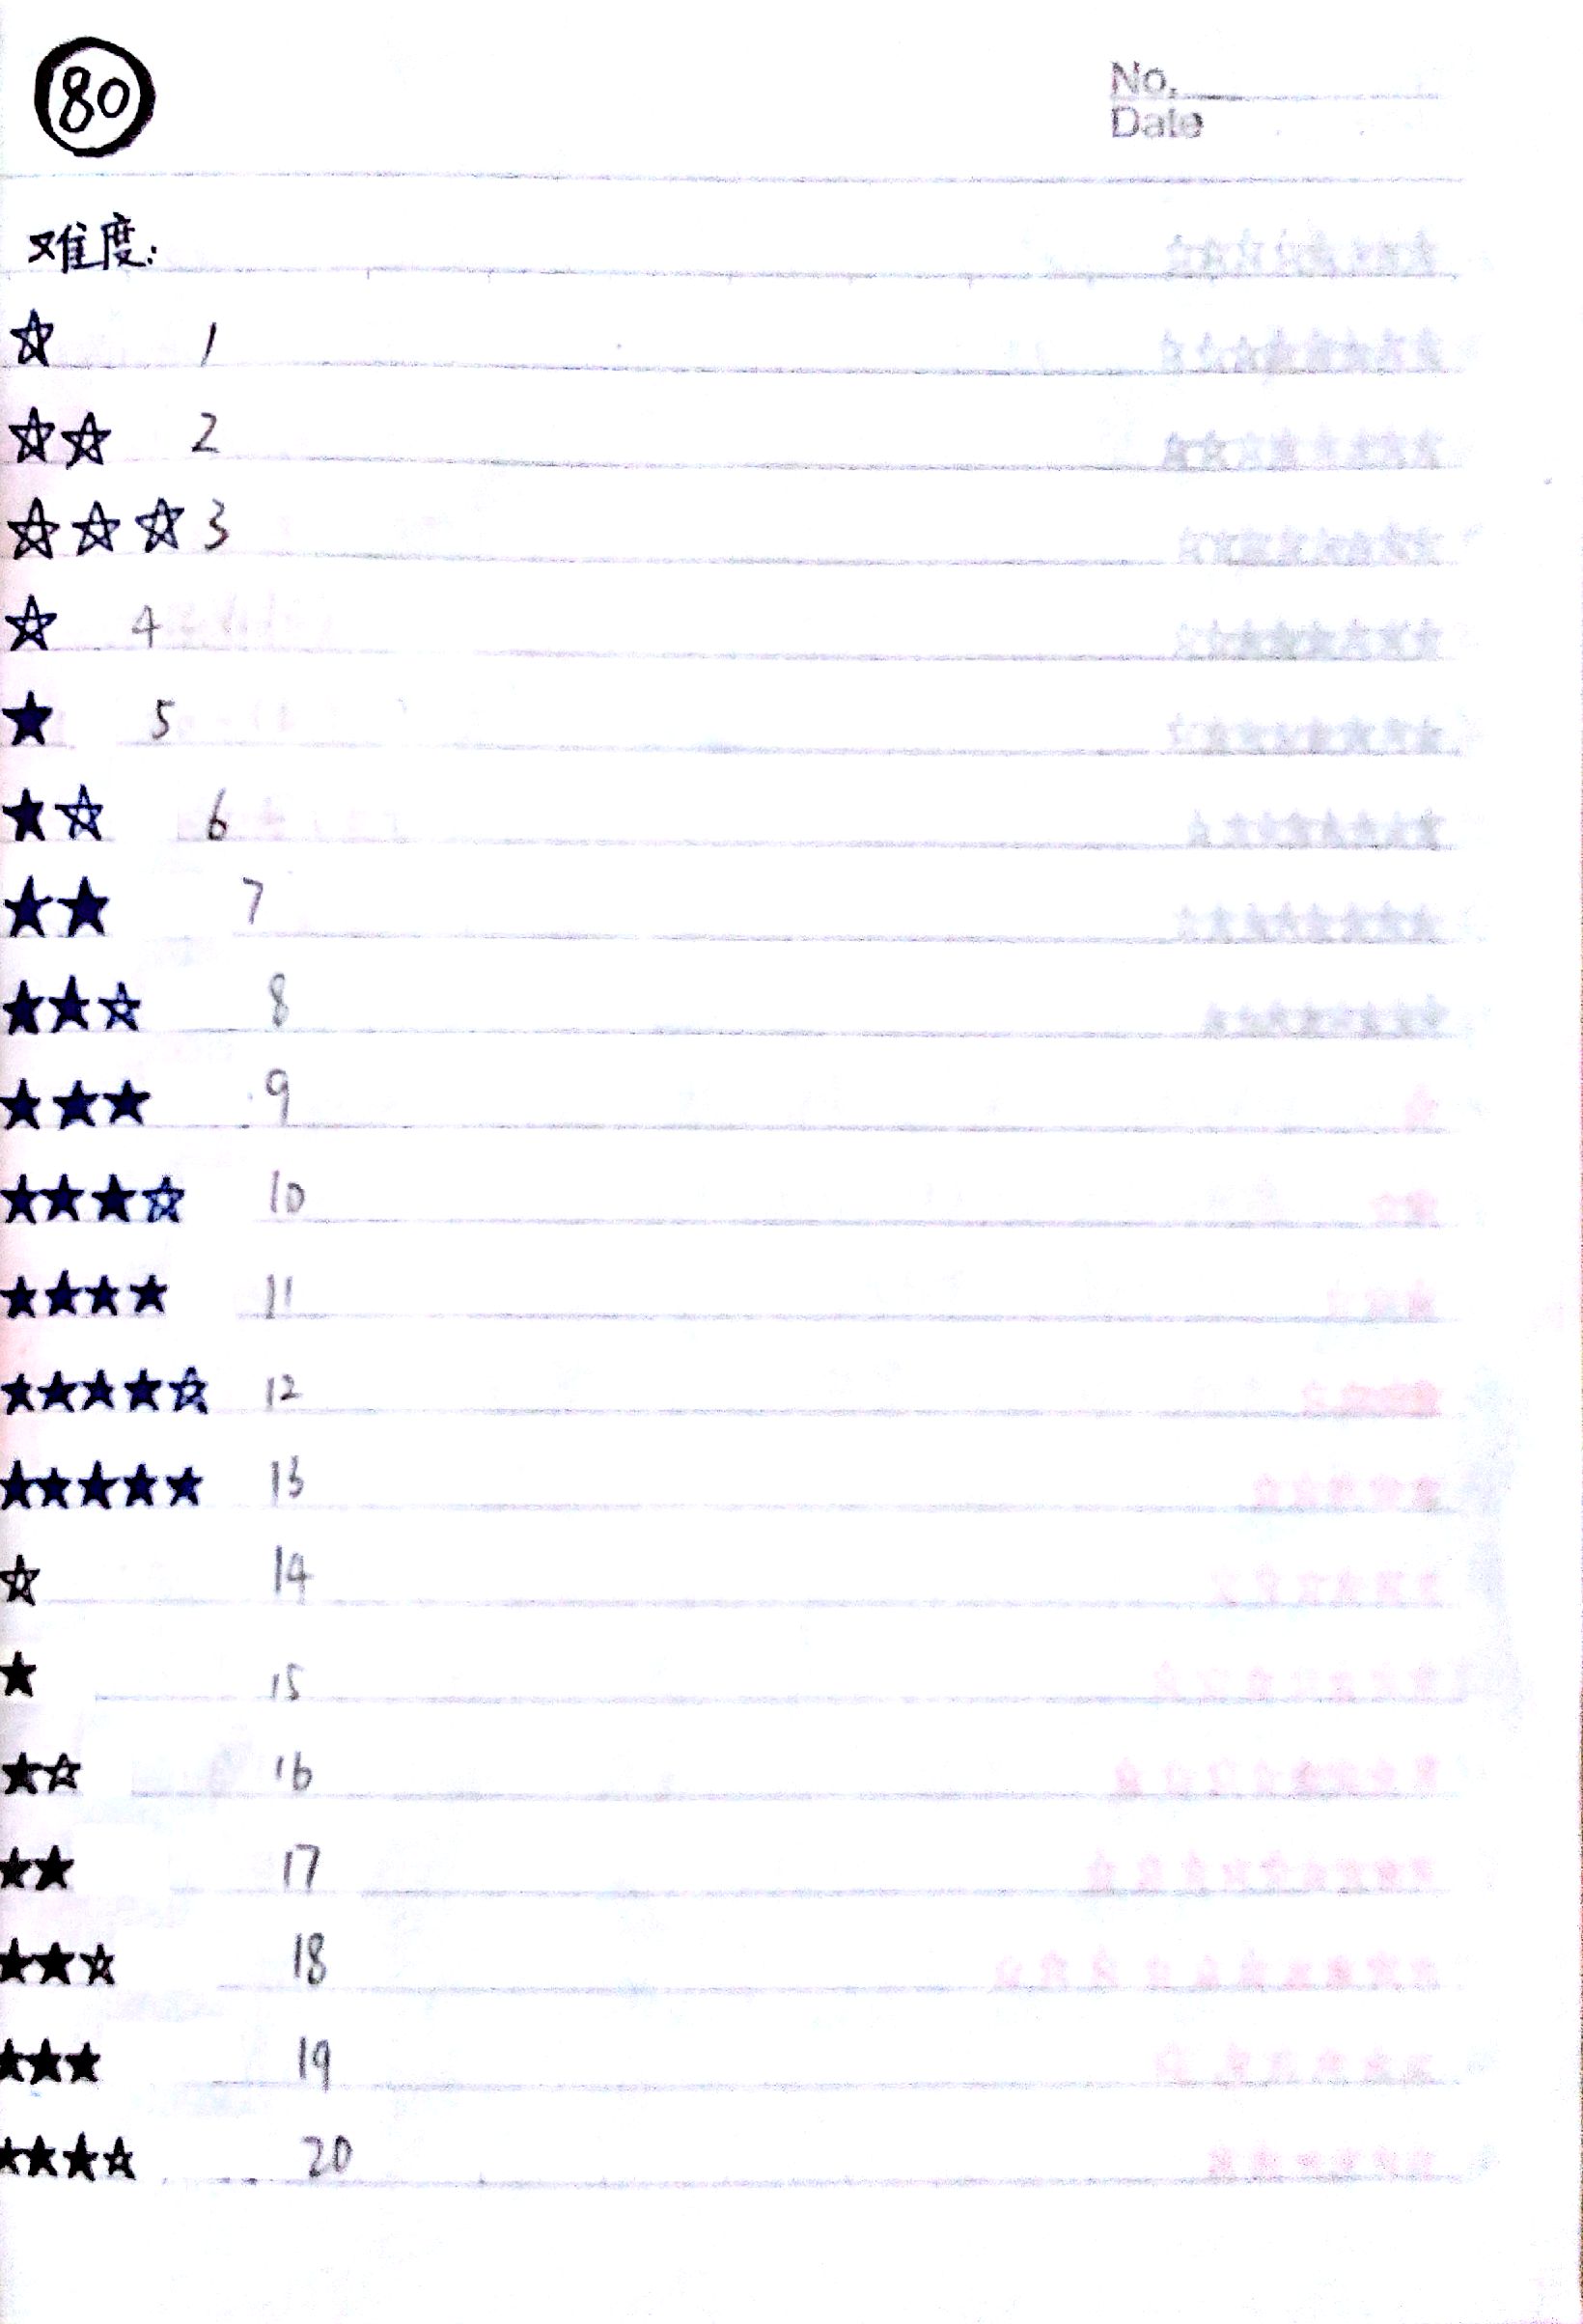 80
No.
Date
难度:
☆ 1
☆☆ 2
☆☆☆ 3
☆ 4
★ 5
★☆ 6
★★ 7
★★☆ 8
★★★ 9
★★★☆ 10
★★★★ 11
★★★★☆ 12
★★★★★ 13
☆ 14
★ 15
★☆ 16
★★ 17
★★☆ 18
★★★ 19
★★★☆ 20